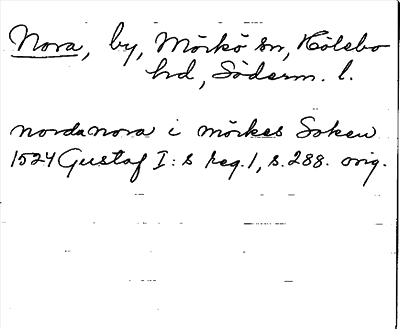 Nora, by, Mörkö sn, Hölebo
hd, Söderm. l.
norda nora i mörkes Soken
1524 Gustaf I:s reg. 1, s. 288. orig.